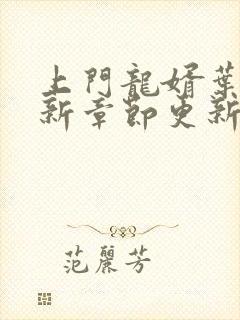 上門龍婿葉
新章節更新
范麗芳